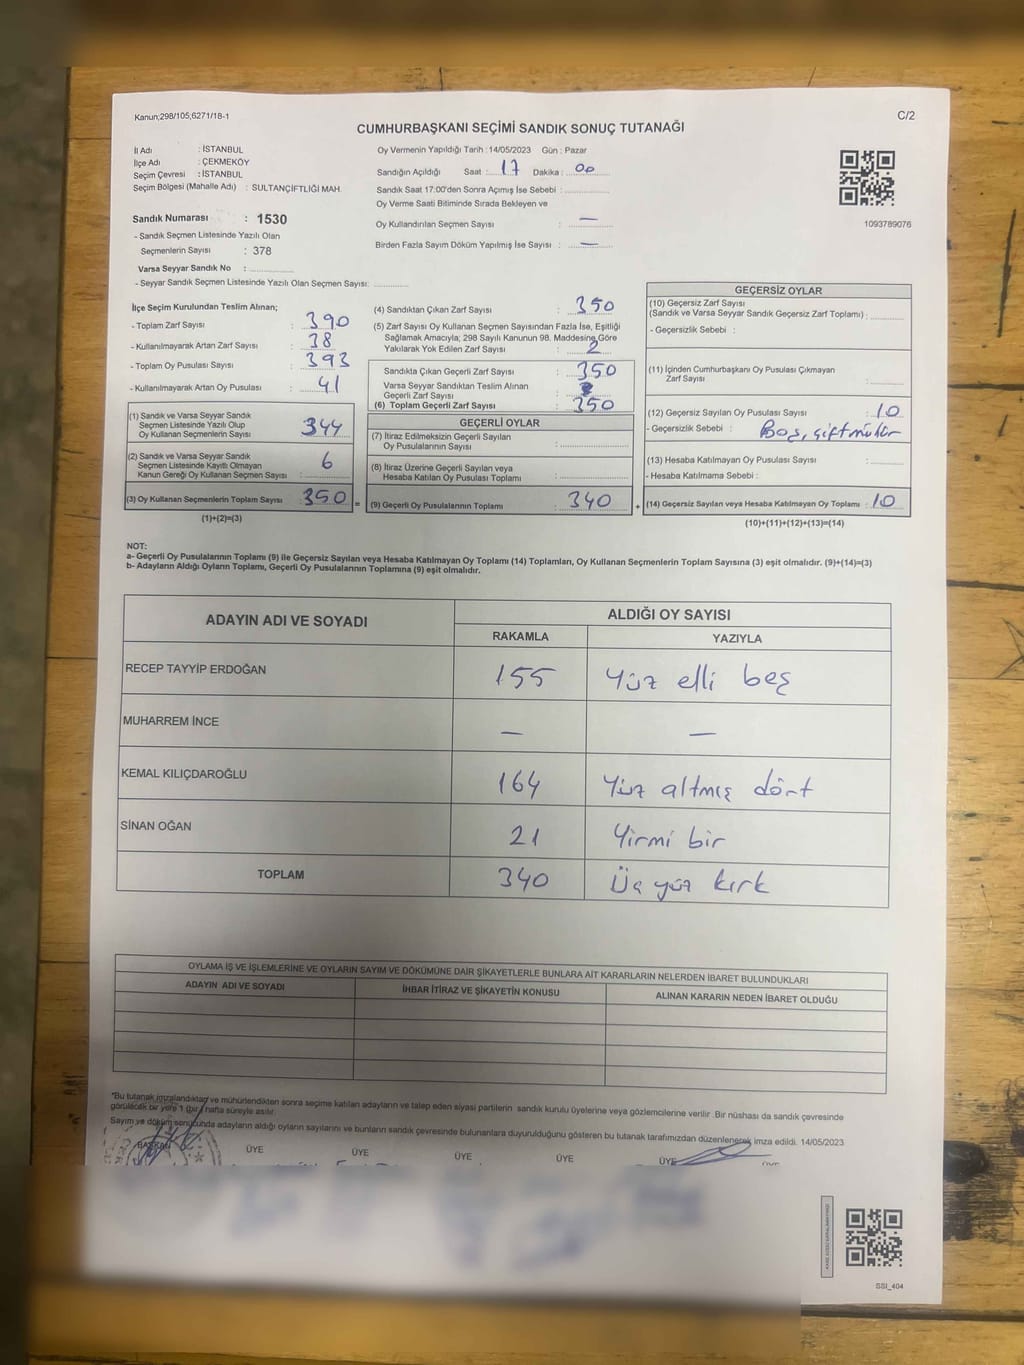 Kanun;298/105;6271/18-1
C/2
CUMHURBAŞKANI SEÇİMİ SANDIK SONUÇ TUTANAĞI
İl Adı : İSTANBUL
İlçe Adı : ÇEKMEKÖY
Seçim Çevresi : İSTANBUL
Seçim Bölgesi (Mahalle Adı) : SULTANÇİFTLİĞİ MAH.
Sandık Numarası : 1530
- Sandık Seçmen Listesinde Yazılı Olan
Seçmenlerin Sayısı : 378
Varsa Seyyar Sandık No :
- Seyyar Sandık Seçmen Listesinde Yazılı Olan Seçmen Sayısı:
Oy Vermenin Yapıldığı Tarih : 14/05/2023 Gün : Pazar
Sandığın Açıldığı Saat : 17 Dakika : 00
Sandık Saat 17:00'den Sonra Açımış İse Sebebi :
Oy Verme Saati Bitiminde Sırada Bekleyen ve
Oy Kullandırılan Seçmen Sayısı : —
Birden Fazla Sayım Döküm Yapılmış İse Sayısı : —
1093789076
İlçe Seçim Kurulundan Teslim Alınan;
- Toplam Zarf Sayısı : 390
- Kullanılmayarak Artan Zarf Sayısı : 38
- Toplam Oy Pusulası Sayısı : 393
- Kullanılmayarak Artan Oy Pusulası : 41
(1) Sandık ve Varsa Seyyar Sandık
Seçmen Listesinde Yazılı Olup
Oy Kullanan Seçmenlerin Sayısı : 344
(2) Sandık ve Varsa Seyyar Sandık
Seçmen Listesinde Kayıtlı Olmayan
Kanun Gereği Oy Kullanan Seçmen Sayısı : 6
(3) Oy Kullanan Seçmenlerin Toplam Sayısı : 350
(1)+(2)=(3)
(4) Sandıktan Çıkan Zarf Sayısı : 350
(5) Zarf Sayısı Oy Kullanan Seçmen Sayısından Fazla İse, Eşitliği
Sağlamak Amacıyla; 298 Sayılı Kanunun 98. Maddesine Göre
Yakılarak Yok Edilen Zarf Sayısı : 2
Sandıkta Çıkan Geçerli Zarf Sayısı : 350
Varsa Seyyar Sandıktan Teslim Alınan
Geçerli Zarf Sayısı :
(6) Toplam Geçerli Zarf Sayısı : 350
GEÇERLİ OYLAR
(7) İtiraz Edilmeksizin Geçerli Sayılan
Oy Pusulalarının Sayısı :
(8) İtiraz Üzerine Geçerli Sayılan veya
Hesaba Katılan Oy Pusulası Toplamı :
= (9) Geçerli Oy Pusulalarının Toplamı : 340 +
GEÇERSİZ OYLAR
(10) Geçersiz Zarf Sayısı
(Sandık ve Varsa Seyyar Sandık Geçersiz Zarf Toplamı) :
- Geçersizlik Sebebi :
(11) İçinden Cumhurbaşkanı Oy Pusulası Çıkmayan
Zarf Sayısı :
(12) Geçersiz Sayılan Oy Pusulası Sayısı : 10
- Geçersizlik Sebebi : Boş, çift mühür
(13) Hesaba Katılmayan Oy Pusulası Sayısı :
- Hesaba Katılmama Sebebi :
(14) Geçersiz Sayılan veya Hesaba Katılmayan Oy Toplamı : 10
(10)+(11)+(12)+(13)=(14)
NOT:
a- Geçerli Oy Pusulalarının Toplamı (9) ile Geçersiz Sayılan veya Hesaba Katılmayan Oy Toplamı (14) Toplamları, Oy Kullanan Seçmenlerin Toplam Sayısına (3) eşit olmalıdır. (9)+(14)=(3)
b- Adayların Aldığı Oyların Toplamı, Geçerli Oy Pusulalarının Toplamına (9) eşit olmalıdır.
ADAYIN ADI VE SOYADI
ALDIĞI OY SAYISI
RAKAMLA YAZIYLA
RECEP TAYYİP ERDOĞAN 155 Yüz elli beş
MUHARREM İNCE — —
KEMAL KILIÇDAROĞLU 164 Yüz altmış dört
SİNAN OĞAN 21 Yirmi bir
TOPLAM 340 Üç yüz kırk
OYLAMA İŞ VE İŞLEMLERİNE VE OYLARIN SAYIM VE DÖKÜMÜNE DAİR ŞİKAYETLERLE BUNLARA AİT KARARLARIN NELERDEN İBARET BULUNDUKLARI
ADAYIN ADI VE SOYADI İHBAR İTİRAZ VE ŞİKAYETİN KONUSU ALINAN KARARIN NEDEN İBARET OLDUĞU
*Bu tutanak imzalandıktan ve mühürlendikten sonra seçime katılan adayların ve talep eden siyasi partilerin sandık kurulu üyelerine veya gözlemcilerine verilir. Bir nüshası da sandık çevresinde
görülecek bir yere 1 (bir) hafta süreyle asılır.
Sayım ve döküm sonucunda adayların aldığı oyların sayılarını ve bunların sandık çevresinde bulunanlara duyurulduğunu gösteren bu tutanak tarafımızdan düzenlenerek imza edildi. 14/05/2023
BAŞKAN ÜYE ÜYE ÜYE ÜYE ÜYE ÜYE
SSI_404